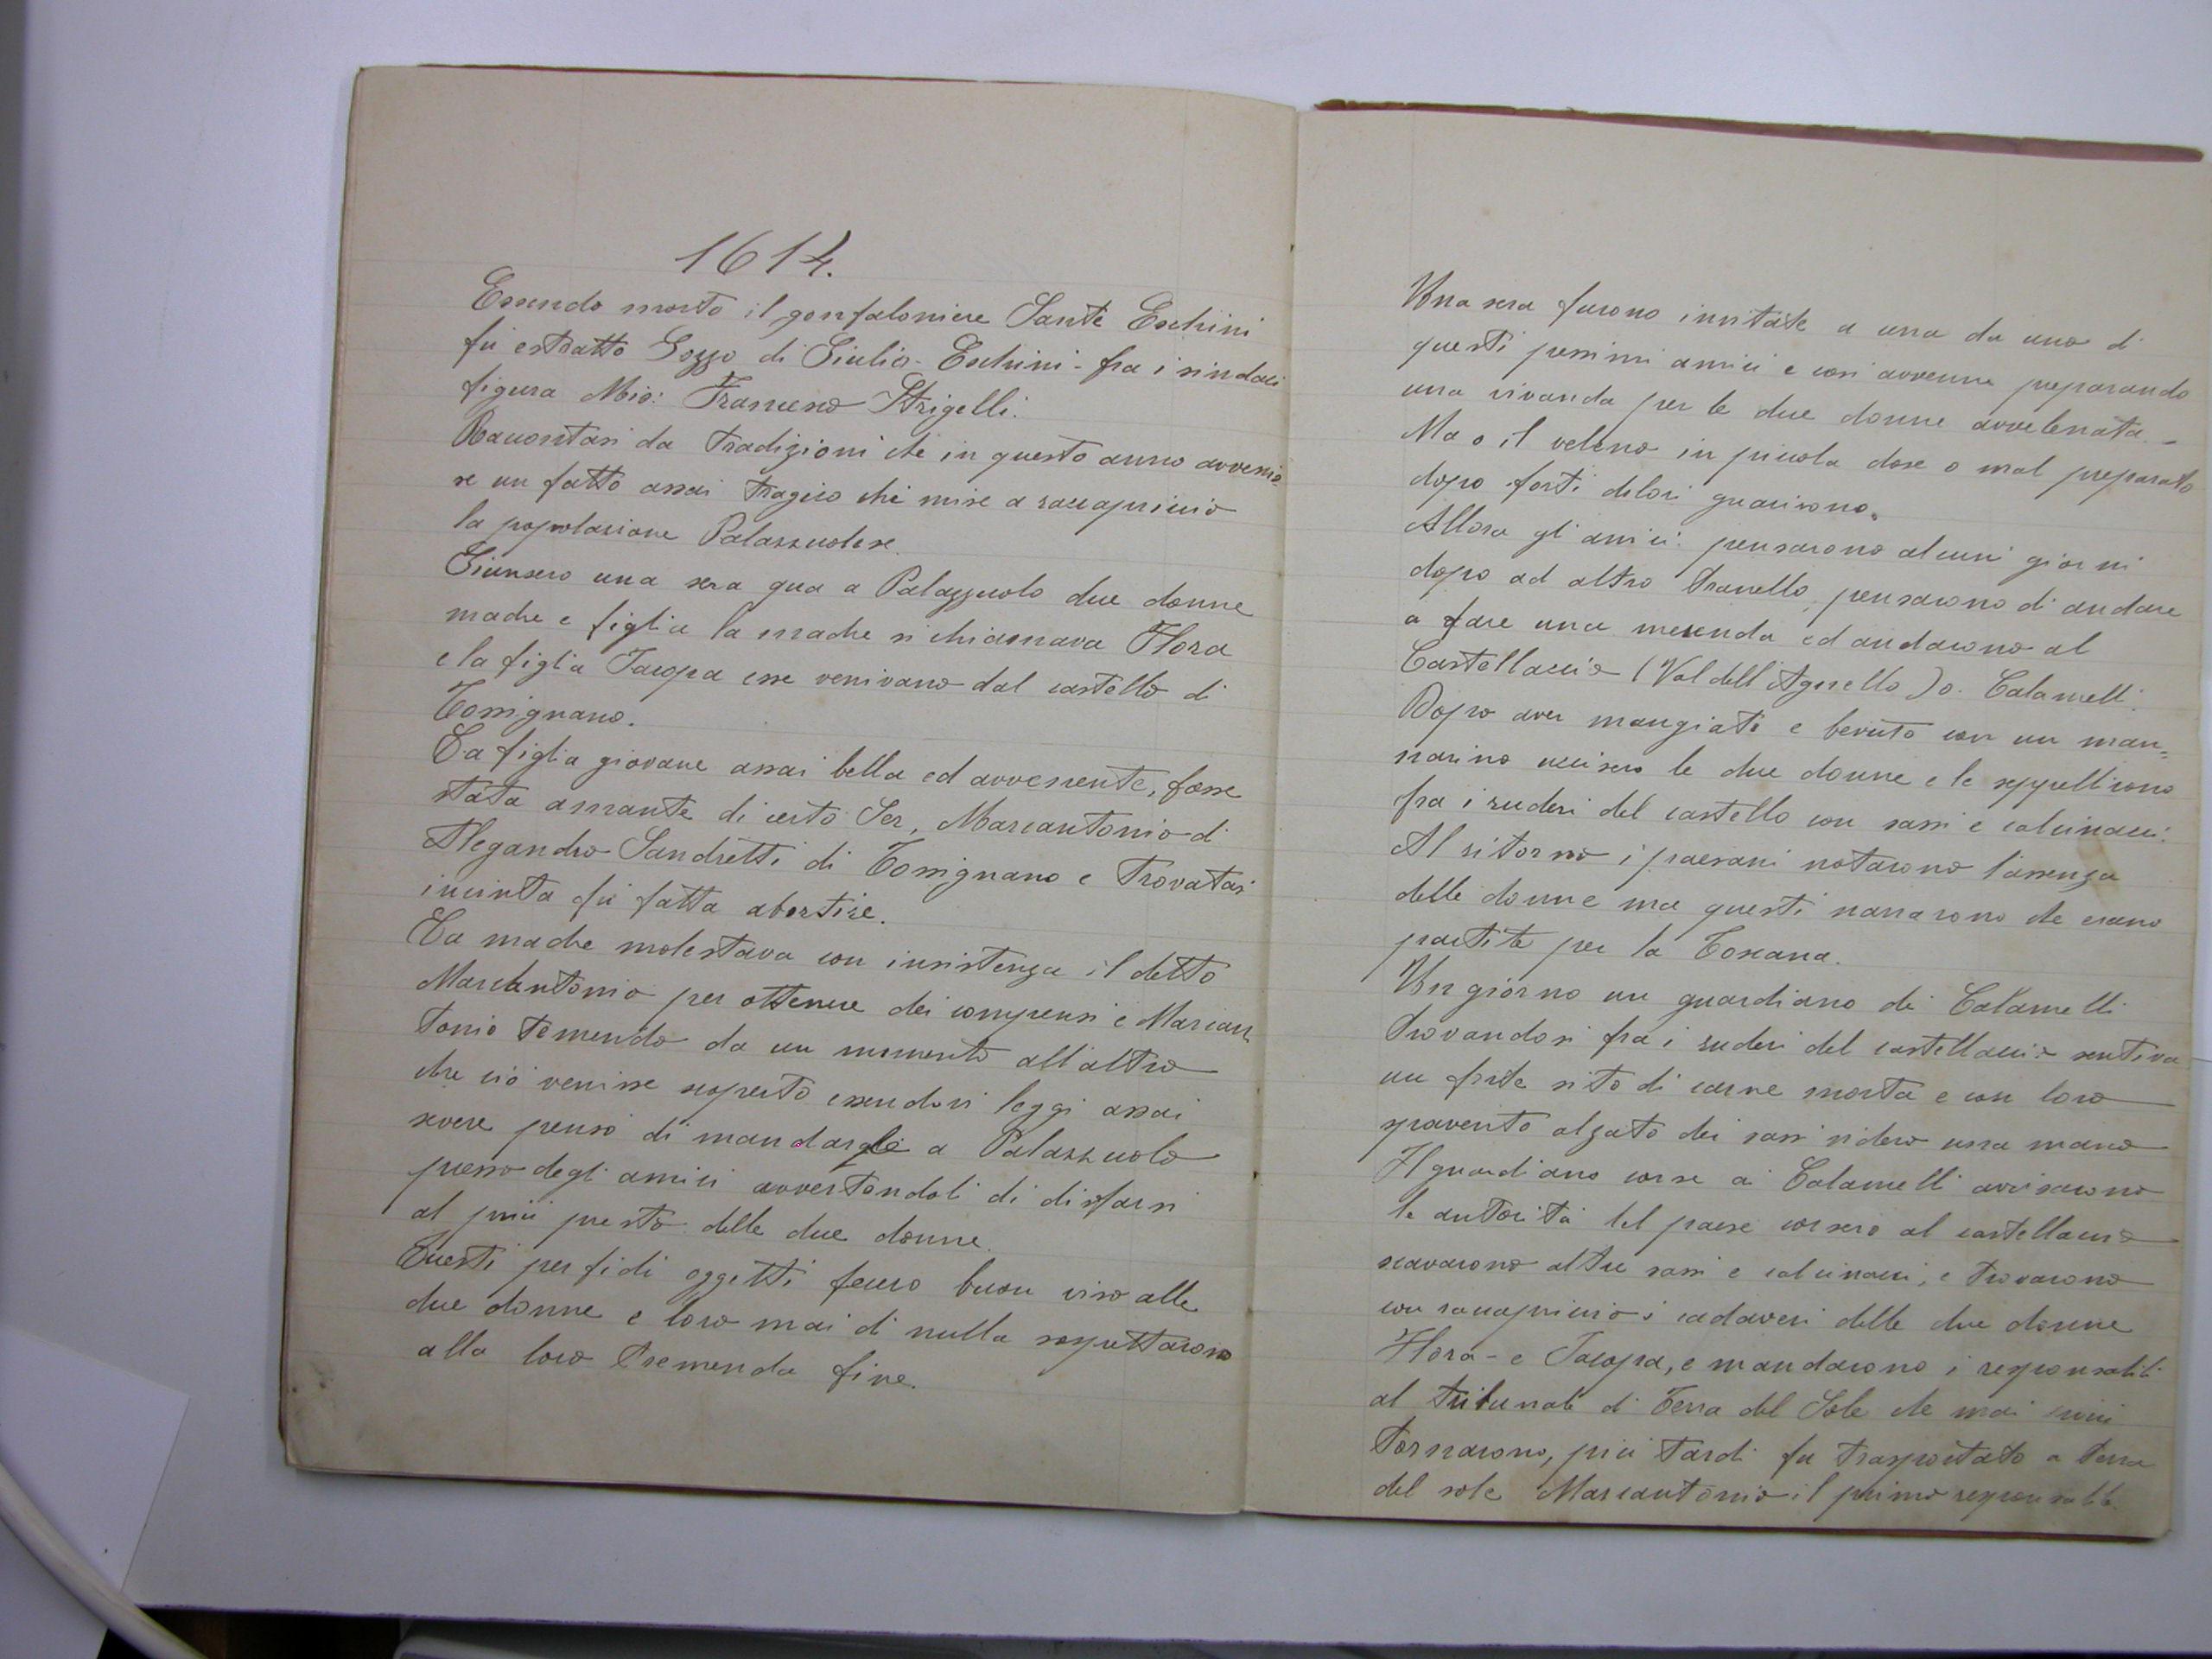 1614.
Essendo morto il gonfaloniere Sante Eschini
fù estratto Gozzo di Giulio - Eschini - fra i sindaci
figura Mio: Francesco Strigelli.
Raccontasi da tradizioni che in questo anno avvenis=
se un fatto assai tragico che mise a raccapriccio
la popolazione Palazzuolese.
Giunsero una sera qua a Palazzuolo due donne
madre e figlia la madre si chiamava Flora
e la figlia Jacopa esse venivano dal castello di
Tossignano.
La figlia giovane assai bella ed avvenente, fosse
stata amante di certo Ser, Marcantonio di
Alegandro Sandretti di Tossignano e trovatasi
incinta fù fatta abortire.
La madre molestava con insistenza il detto
Marcantonio per ottenere dei compensi e Marcan
tonio temendo da un momento all'altro
che ciò venisse scoperto essendovi leggi assai
severe pensò di mandargle a Palazzuolo
presso degli amici avvertendoli di disfarsi
al più presto delle due donne.
Questi perfidi oggetti fecero buon viso alle
due donne e loro mai di nulla sospettarono
alla loro tremenda fine.
Una sera furono invitate a cena da uno di
questi pessimi amici e così avvenne preparando
una vivanda per le due donne avvelenata -
Ma o il veleno in piccola dose o mal preparato
dopo forti dolori guarirono.
Allora gl'amici pensarono alcuni giorni
dopo ad altro tranello, pensarono di andare
a fare una merenda ed andarono al
Castellaccio (Val dell'Agnello) o. Calamelli.
Dopo aver mangiato e bevuto con un man=
narino uccisero le due donne e le seppellirono
fra i ruderi del castello con sassi e calcinacci.
Al ritorno i paesani notarono l'assenza
delle donne ma questi narrarono che erano
partite per la Toscana.
Un giorno un guardiano di Calamelli
trovandosi fra i ruderi del castellaccio sentiva
un forte sito di carne morta e con loro
spavento alzato dei sassi videro una mano
Il guardiano corse ai Calamelli avvisarono
le autorità del paese corsero al castellaccio
scavarono altri sassi e calcinacci, e trovarono
con raccapriccio i cadaveri delle due donne
Flora - e Jacopa, e mandarono i responsabili
al tribunale di Terra del Sole che mai più
tornarono, più tardi fu trasportato a terra
del sole Marcantonio il primo responsabile